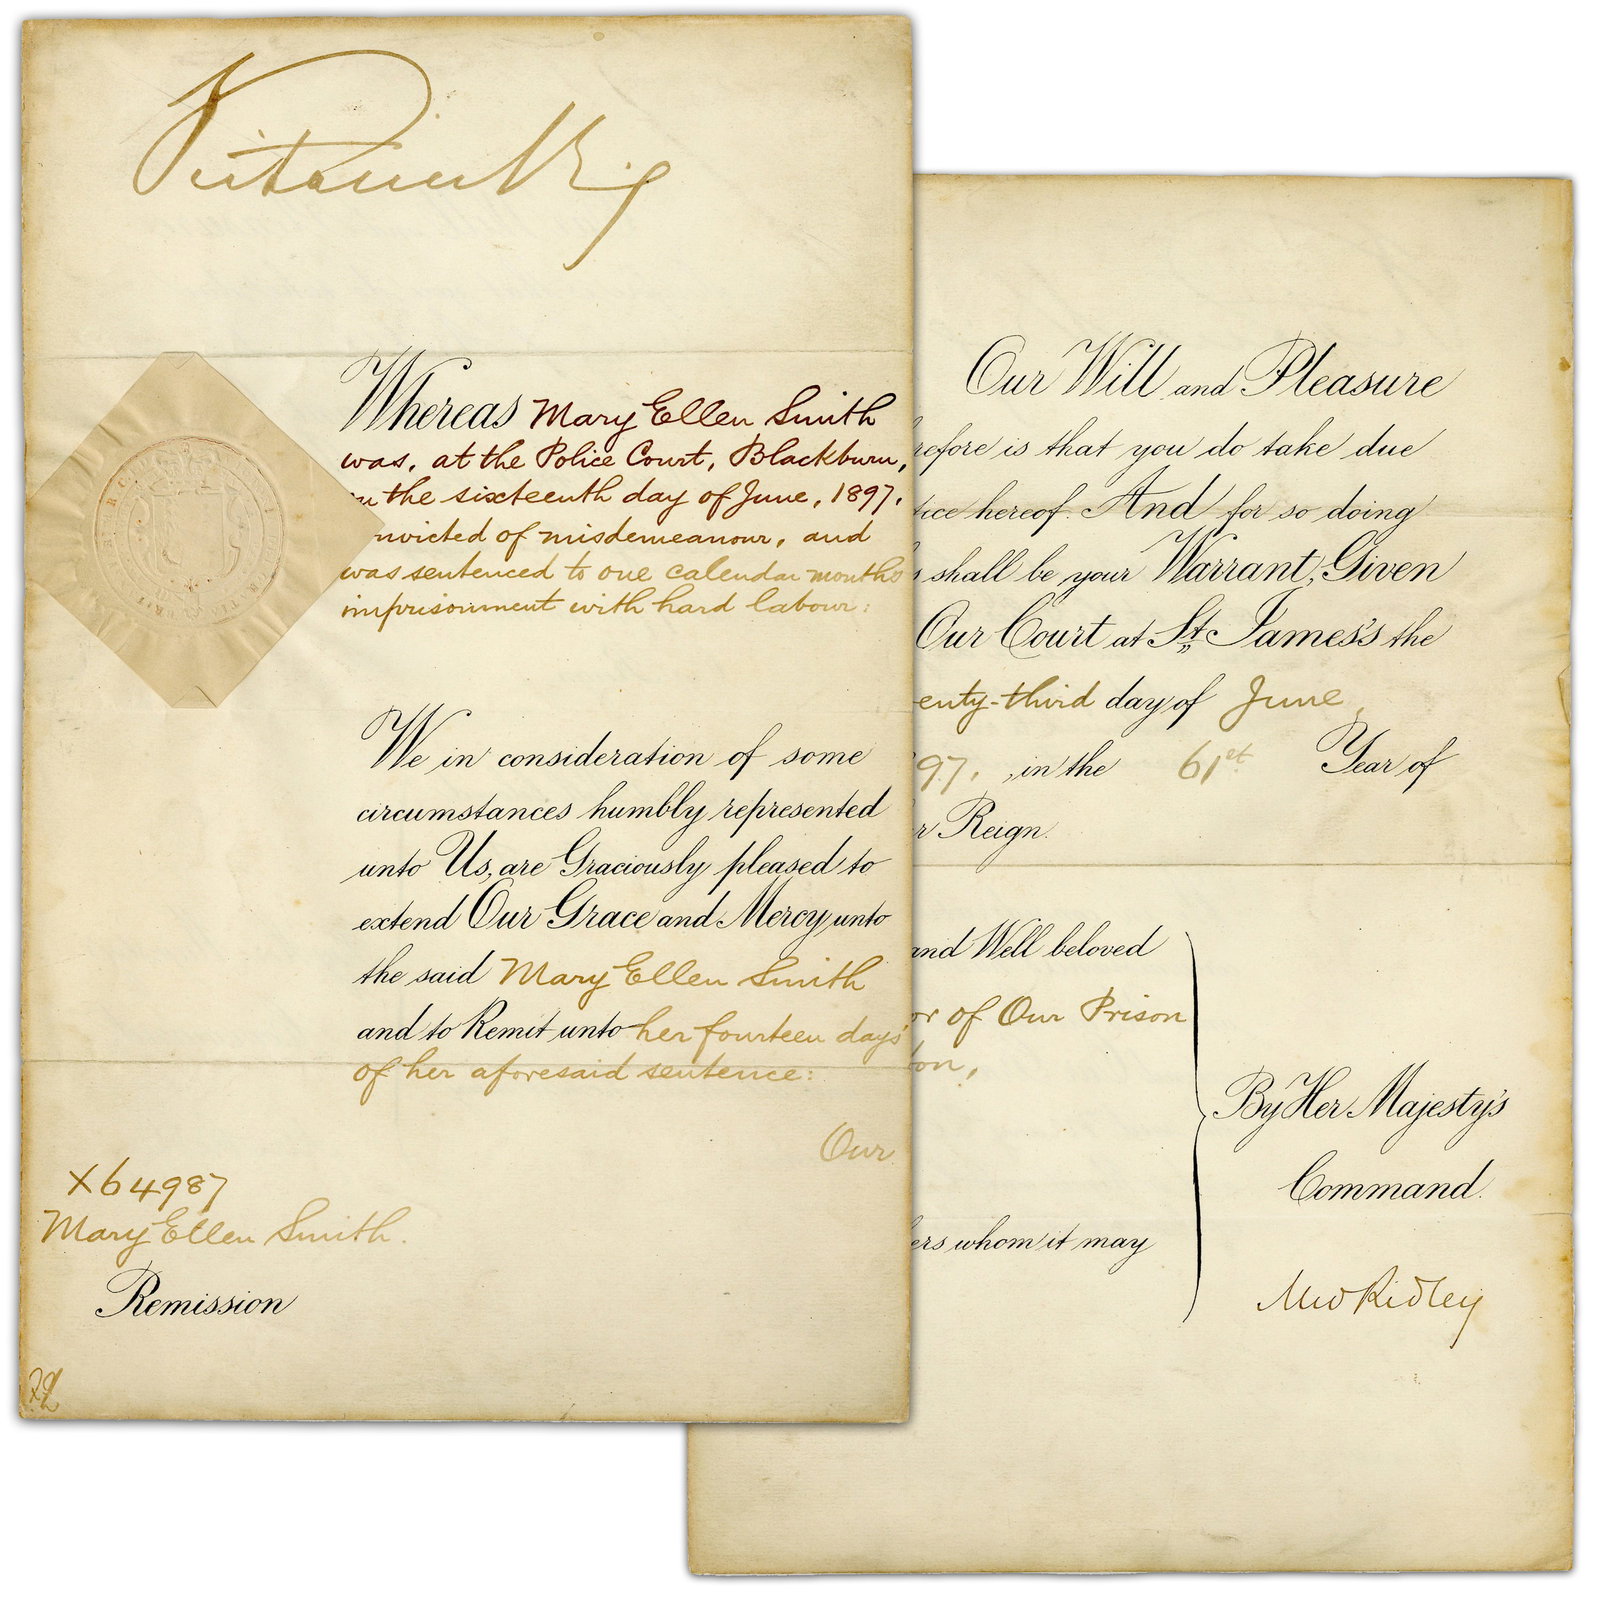 Victoria R.I.
Whereas Mary Ellen Smith
was, at the Police Court, Blackburn,
the sixteenth day of June, 1897,
nvicted of misdemeanour, and
was sentenced to one calendar month's
imprisonment with hard labour:
We in consideration of some
circumstances humbly represented
unto Us, are Graciously pleased to
extend Our Grace and Mercy unto
the said Mary Ellen Smith
and to Remit unto her fourteen days'
of her aforesaid sentence:
Our
X64987
Mary Ellen Smith.
Remission
Our Will and Pleasure
refore is that you do take due
tice hereof. And for so doing
s shall be your Warrant, Given
Our Court at St. James's the
enty-third day of June,
97, in the 61st Year of
r Reign.
and Well beloved
or of Our Prison
on,
ers whom it may
By Her Majesty's
Command.
M W Ridley